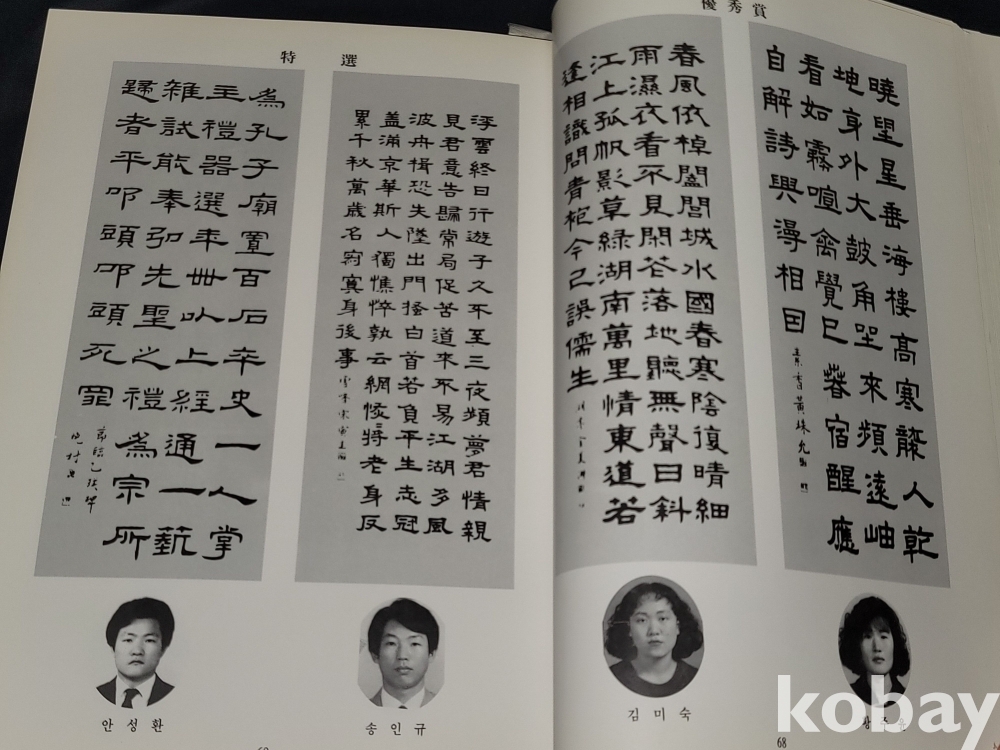 優秀賞
曉望星垂海樓高寒襲人乾
坤身外大鼓角坐來頻遠岫
看如霧喧禽覺已春宿醒應
自解詩興漫相因
春風依棹闔閭城水國春寒陰復晴細
雨濕衣看不見閑花落地聽無聲日斜
江上孤帆影草綠湖南萬里情東道若
逢相識問青袍今已誤儒生
김미숙
68
特選
浮雲終日行遊子久不至三夜頻夢君情親
見君意告歸常局促苦道來不易江湖多風
波舟楫恐失墜出門搔白首若負平生志冠
蓋滿京華斯人獨憔悴孰云網恢〻將老身反
累千秋萬歲名寂寞身後事
為孔子廟置百石卒史一人掌
主禮器選年卌以上經通一藝
雜試能奉弘先聖之禮為宗所
歸者平叩頭叩頭死罪
안성환
송인규
kobay